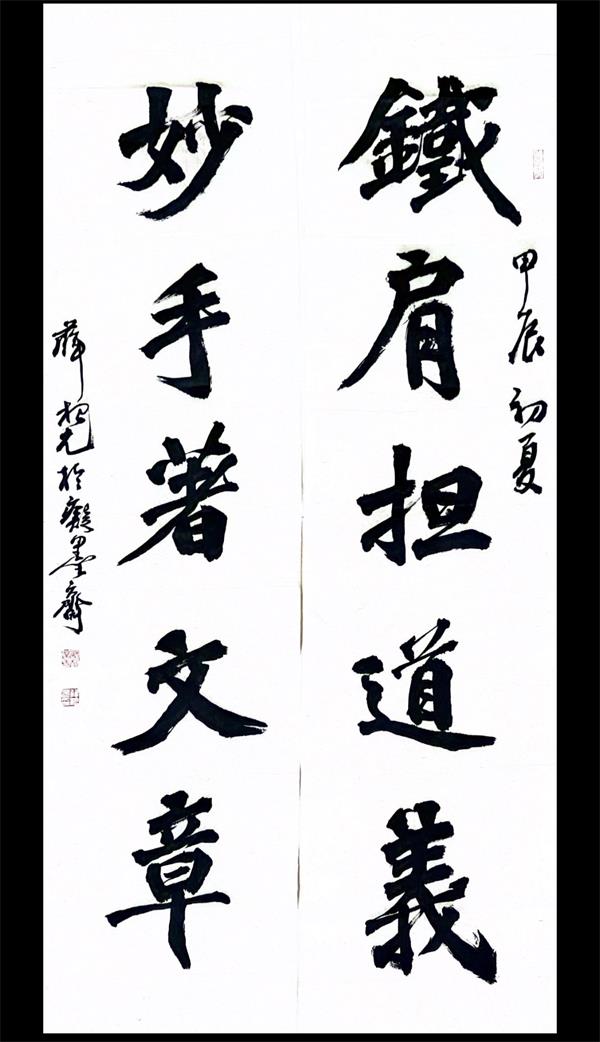 甲辰初夏
鐵肩担道義
妙手著文章
薛光於癡墨齋